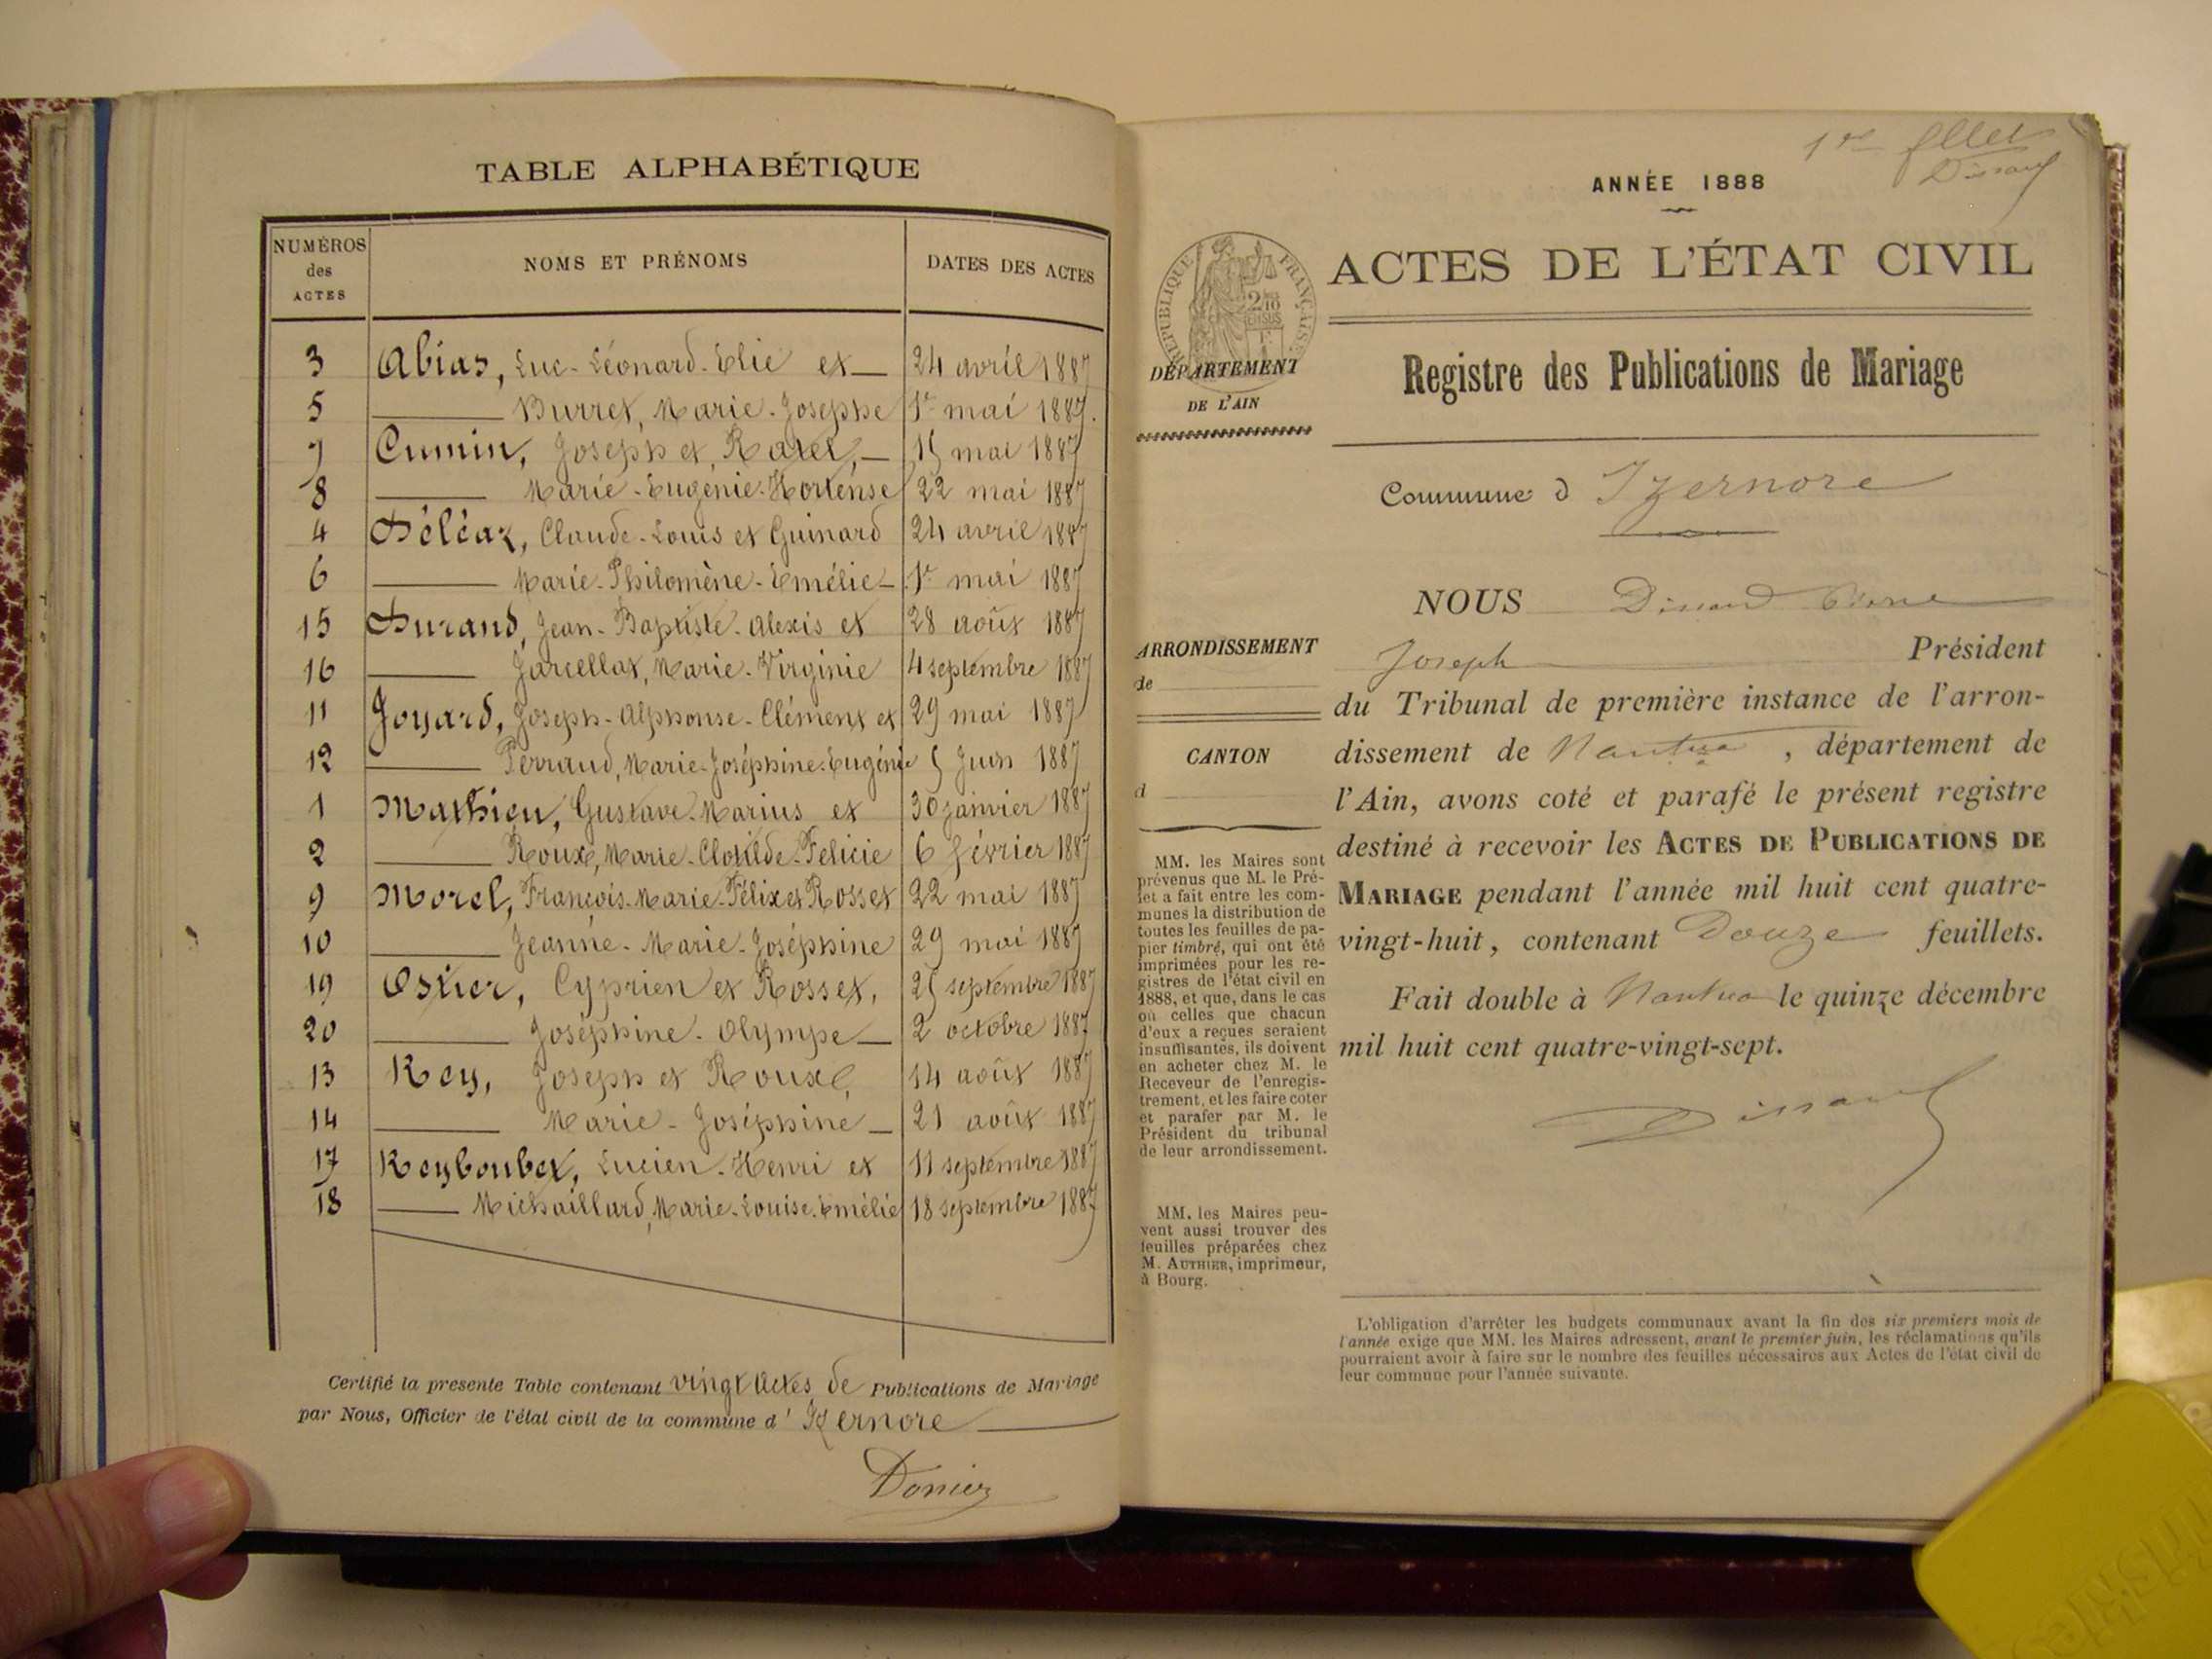 TABLE ALPHABÉTIQUE
NUMÉROS des ACTES
NOMS ET PRÉNOMS
DATES DES ACTES
3 Abias, Luc-Léonard-Elie et 24 avril 1887
5 Burret, Marie-Josephe 1er mai 1887.
7 Cumin, Joseph et 15 mai 1887
8 Marie-Eugénie-Hortense 22 mai 1887
4 Déléaz, Claude-Louis et Guinard 24 avril 1887
6 Marie-Philomène-Emélie 1er mai 1887
15 Durand, Jean-Baptiste-Alexis et 28 août 1887
16 Jarcellat, Marie-Virginie 4 septembre 1887
11 Joyard, Joseph-Alphonse-Clément et 29 mai 1887
12 Perraud, Marie-Joséphine-Eugénie 5 Juin 1887
1 Mathieu, Gustave-Marius et 30 janvier 1887
2 Roux, Marie-Clotilde-Felicie 6 février 1887
9 Morel, François-Marie-Félix et Rosset 22 mai 1887
10 Jeanne-Marie-Joséphine 29 mai 1887
19 Ostier, Cyprien et Rosset, 25 septembre 1887
20 Joséphine-Olympe 2 octobre 1887
13 Rey, Joseph et Roux, 14 août 1887
14 Marie-Joséphine 21 août 1887
17 Reyboubet, Lucien-Henri et 11 septembre 1887
18 Michaillard, Marie-Louise-Emélie 18 septembre 1887
Certifié la presente Table contenant vingt actes de Publications de Mariage
par Nous, Officier de l'état civil de la commune d' Izernore
Donier
1er fllet
Dissard
ANNÉE 1888
RÉPUBLIQUE FRANÇAISE
ACTES DE L'ÉTAT CIVIL
DÉPARTEMENT
DE L'AIN
Registre des Publications de Mariage
Commune d Izernore
NOUS Dissard
Joseph Président
du Tribunal de première instance de l'arron-
dissement de Nantua, département de
l'Ain, avons coté et parafé le présent registre
destiné à recevoir les ACTES DE PUBLICATIONS DE
MARIAGE pendant l'année mil huit cent quatre-
vingt-huit, contenant Douze feuillets.
Fait double à Nantua le quinze décembre
mil huit cent quatre-vingt-sept.
Dissard
ARRONDISSEMENT
de
CANTON
d
MM. les Maires sont
prévenus que M. le Pré-
fet a fait entre les com-
munes la distribution de
toutes les feuilles de pa-
pier timbré, qui ont été
imprimées pour les re-
gistres de l'état civil en
1888, et que, dans le cas
où celles que chacun
d'eux a reçues seraient
insuffisantes, ils doivent
en acheter chez M. le
Receveur de l'enregis-
trement, et les faire coter
et parafer par M. le
Président du tribunal
de leur arrondissement.
MM. les Maires peu-
vent aussi trouver des
feuilles préparées chez
M. AUTHIER, imprimeur,
à Bourg.
L'obligation d'arrêter les budgets communaux avant la fin des six premiers mois de
l'année exige que MM. les Maires adressent, avant le premier juin, les réclamations qu'ils
pourraient avoir à faire sur le nombre des feuilles nécessaires aux Actes de l'état civil de
leur commune pour l'année suivante.